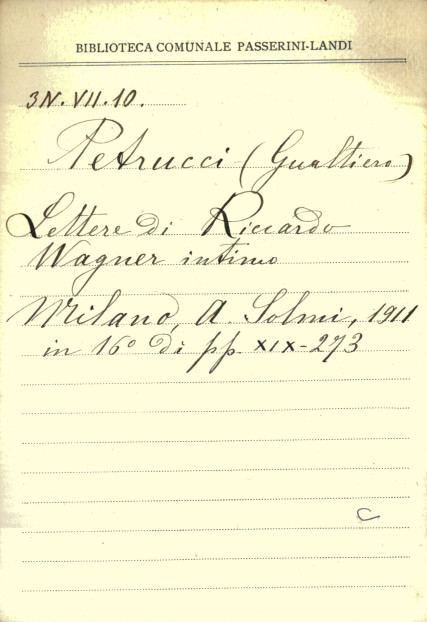 BIBLIOTECA COMUNALE PASSERINI-LANDI
3N.VII.10.
Petrucci (Gualtiero)
Lettere di Riccardo
Wagner intimo
Milano, A. Solmi, 1911
in 16º di pp. XIX-273
C